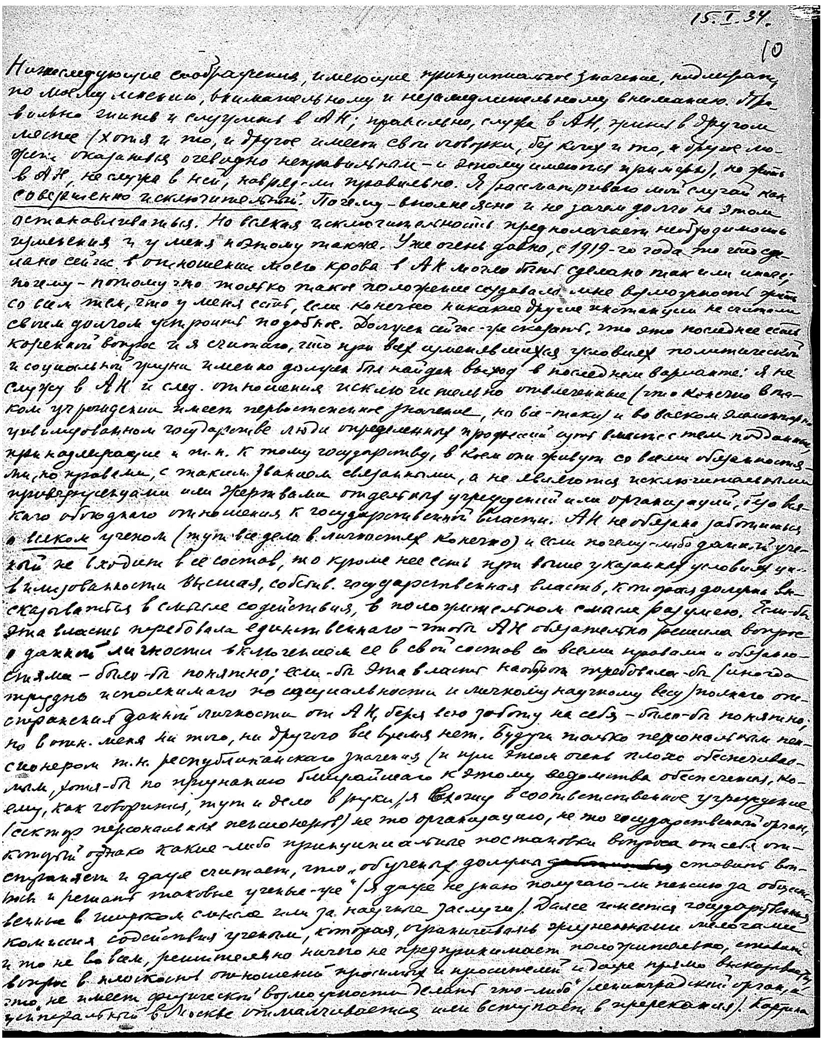 15.I.34.
10
Нижеследующие соображения, имеющие принципиальное значение, подлежат,
по моему мнению, внимательному и незамедлительному вниманию. Пра-
вильно жить и служить в АН; правильно, служа в АН, жить в другом
месте (хотя и то, и другое имеет свои оговорки, без коих и то, и другое мо-
жет оказаться очевидно неправильным – и этому имеются примеры), но жить
в АН, не служа в ней, навряд-ли правильно. Я рассматриваю мой случай как
совершенно исключительный. Почему – вполне ясно и не зачем долго на этом
останавливаться. Но всякая исключительность предполагает необходимость
и у меня поэтому также. Уже очень давно, с 1919-го года то что сде-
лано сейчас в отношении моего крова в АН могло быть сделано так или иначе;
почему – потому что только такое положение создавало мне возможность жить
со всем тем, что у меня есть, если конечно никакие другие инстанции не считали
своим долгом устроить подобное. Должен сейчас-же сказать, что это последнее есть
коренной вопрос и я считаю, что при всех изменявшихся условиях политической
и социальной жизни именно должен был найден выход в последнем варианте: я не
служу в АН и след. отношения исключительно отвлеченные (что конечно в та-
ком учреждении имеет первостепенное значение, но все-таки) и во всяком
цивилизованном государстве люди определенных профессий суть вместе с тем подданные,
принадлежащие и т.п. к тому государству, в коем они живут со всеми обязанностя-
ми, но правами, с таким званием связанными, а не являются исключительными
или жертвами отдельных учреждений или организаций, без вся-
кого обоюдного отношения к государственной власти. АН не обязана заботиться
о всяком ученом (тут все дело в личностях конечно) и если почему-либо данный уче-
ный не входит в ее состав, то кроме нее есть при выше указанных условиях ци-
вилизованности высшая, собств. государственная власть, которая должна вы-
сказываться в смысле содействия, в положительном смысле разумею. Если-бы
эта власть требовала единственного – чтобы АН обязательно решила вопрос
о данной личности включением ее в свой состав со всеми правами и обязанно-
стями – было-бы понятно; если-бы эта власть наоборот требовала-бы (иногда
трудно исполнимого по специальности и личному научному весу) полного от-
странения данной личности от АН, беря всю заботу на себя – было-бы понятно,
но в отн. меня ни того, ни другого все время нет. Будучи только персональным пен-
сионером т.н. республиканского значения (и при этом очень плохо обеспечивае-
мым, хотя-бы по признанию ближайшего к этому ведомства обеспечения, ко-
ему, как говорится, тут и дело в руки), я вхожу в соответственное учреждение
(сектор персональных пенсионеров) не то организацию, не то государственный орган,
который однако какие-либо принципиальные постановки вопроса от себя от-
страняет и даже считает, что „об ученых должны ставить воп-
сы и решать таковые ученые-же" (я даже не знаю получаю-ли пенсию за общест-
венные в широком смысле или за научные заслуги). Далее имеется государственная
комиссия содействия ученым, которая, ограничиваясь мелочами
и то не во всем, решительно ничего не предпринимает положительно, ставит
вопрос в плоскость отношений просимых и просителей и даже прямо высказывает,
что „не имеет физической возможности делать что-либо" (ленинградский орган, а
центральный в Москве отмалчивается или вступает в пререкания). Картина